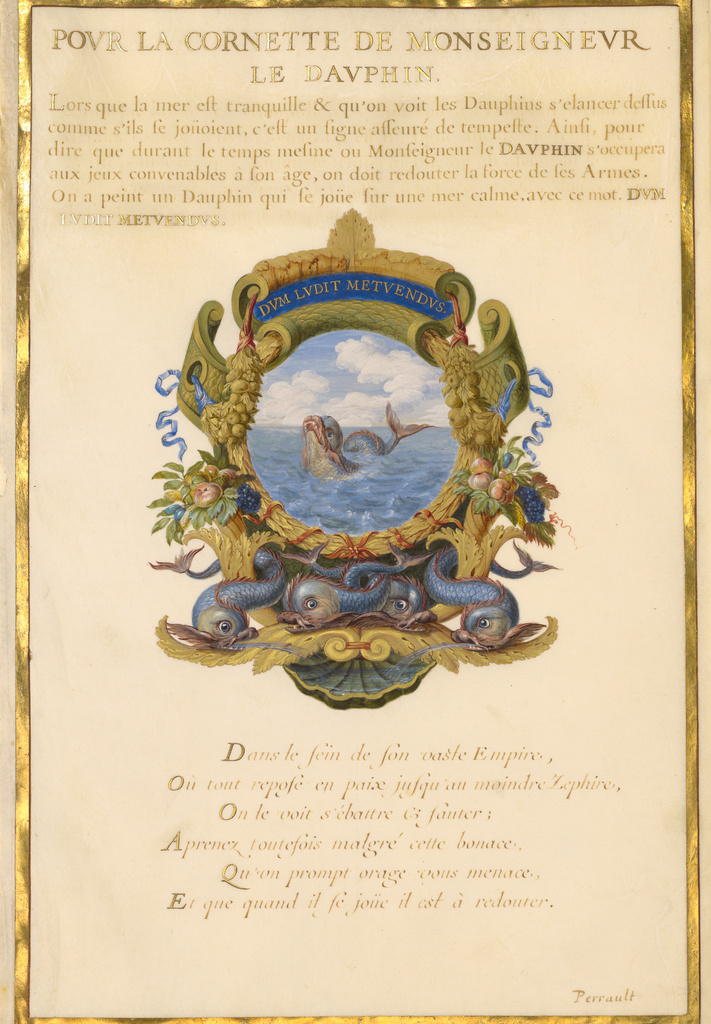 POVR LA CORNETTE DE MONSEIGNEVR
LE DAVPHIN.
Lors que la mer eſt tranquille & qu'on voit les Dauphins s'elancer deſſus
comme s'ils ſe joüoient, c'eſt un ſigne aſſeuré de tempeſte. Ainſi, pour
dire que durant le temps meſme ou Monſeigneur le DAVPHIN s'occupera
aux jeux convenables à ſon âge, on doit redouter la force de ſes Armes.
On a peint un Dauphin qui ſe joüe ſur une mer calme, avec ce mot. DVM
LVDIT METVENDVS.
DVM LVDIT METVENDVS.
Dans le ſein de ſon vaſte Empire,
Où tout repoſe en paix juſqu'au moindre Zephire,
On le voit s'ébattre & ſauter;
Aprenez toutefois malgré cette bonace,
Qu'un prompt orage vous menace,
Et que quand il ſe joüe il est à redouter.
Perrault